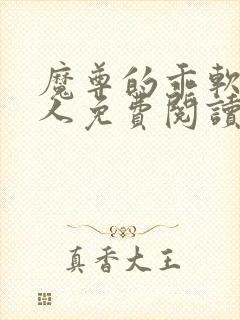 魔尊的乖軟美
人免費閱讀
真香大王